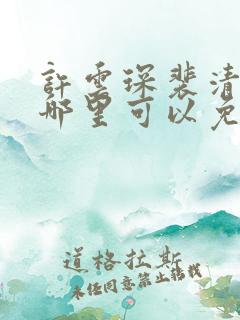 許雲琛裴清
哪里可以免
道格拉斯
未经同意禁止转载